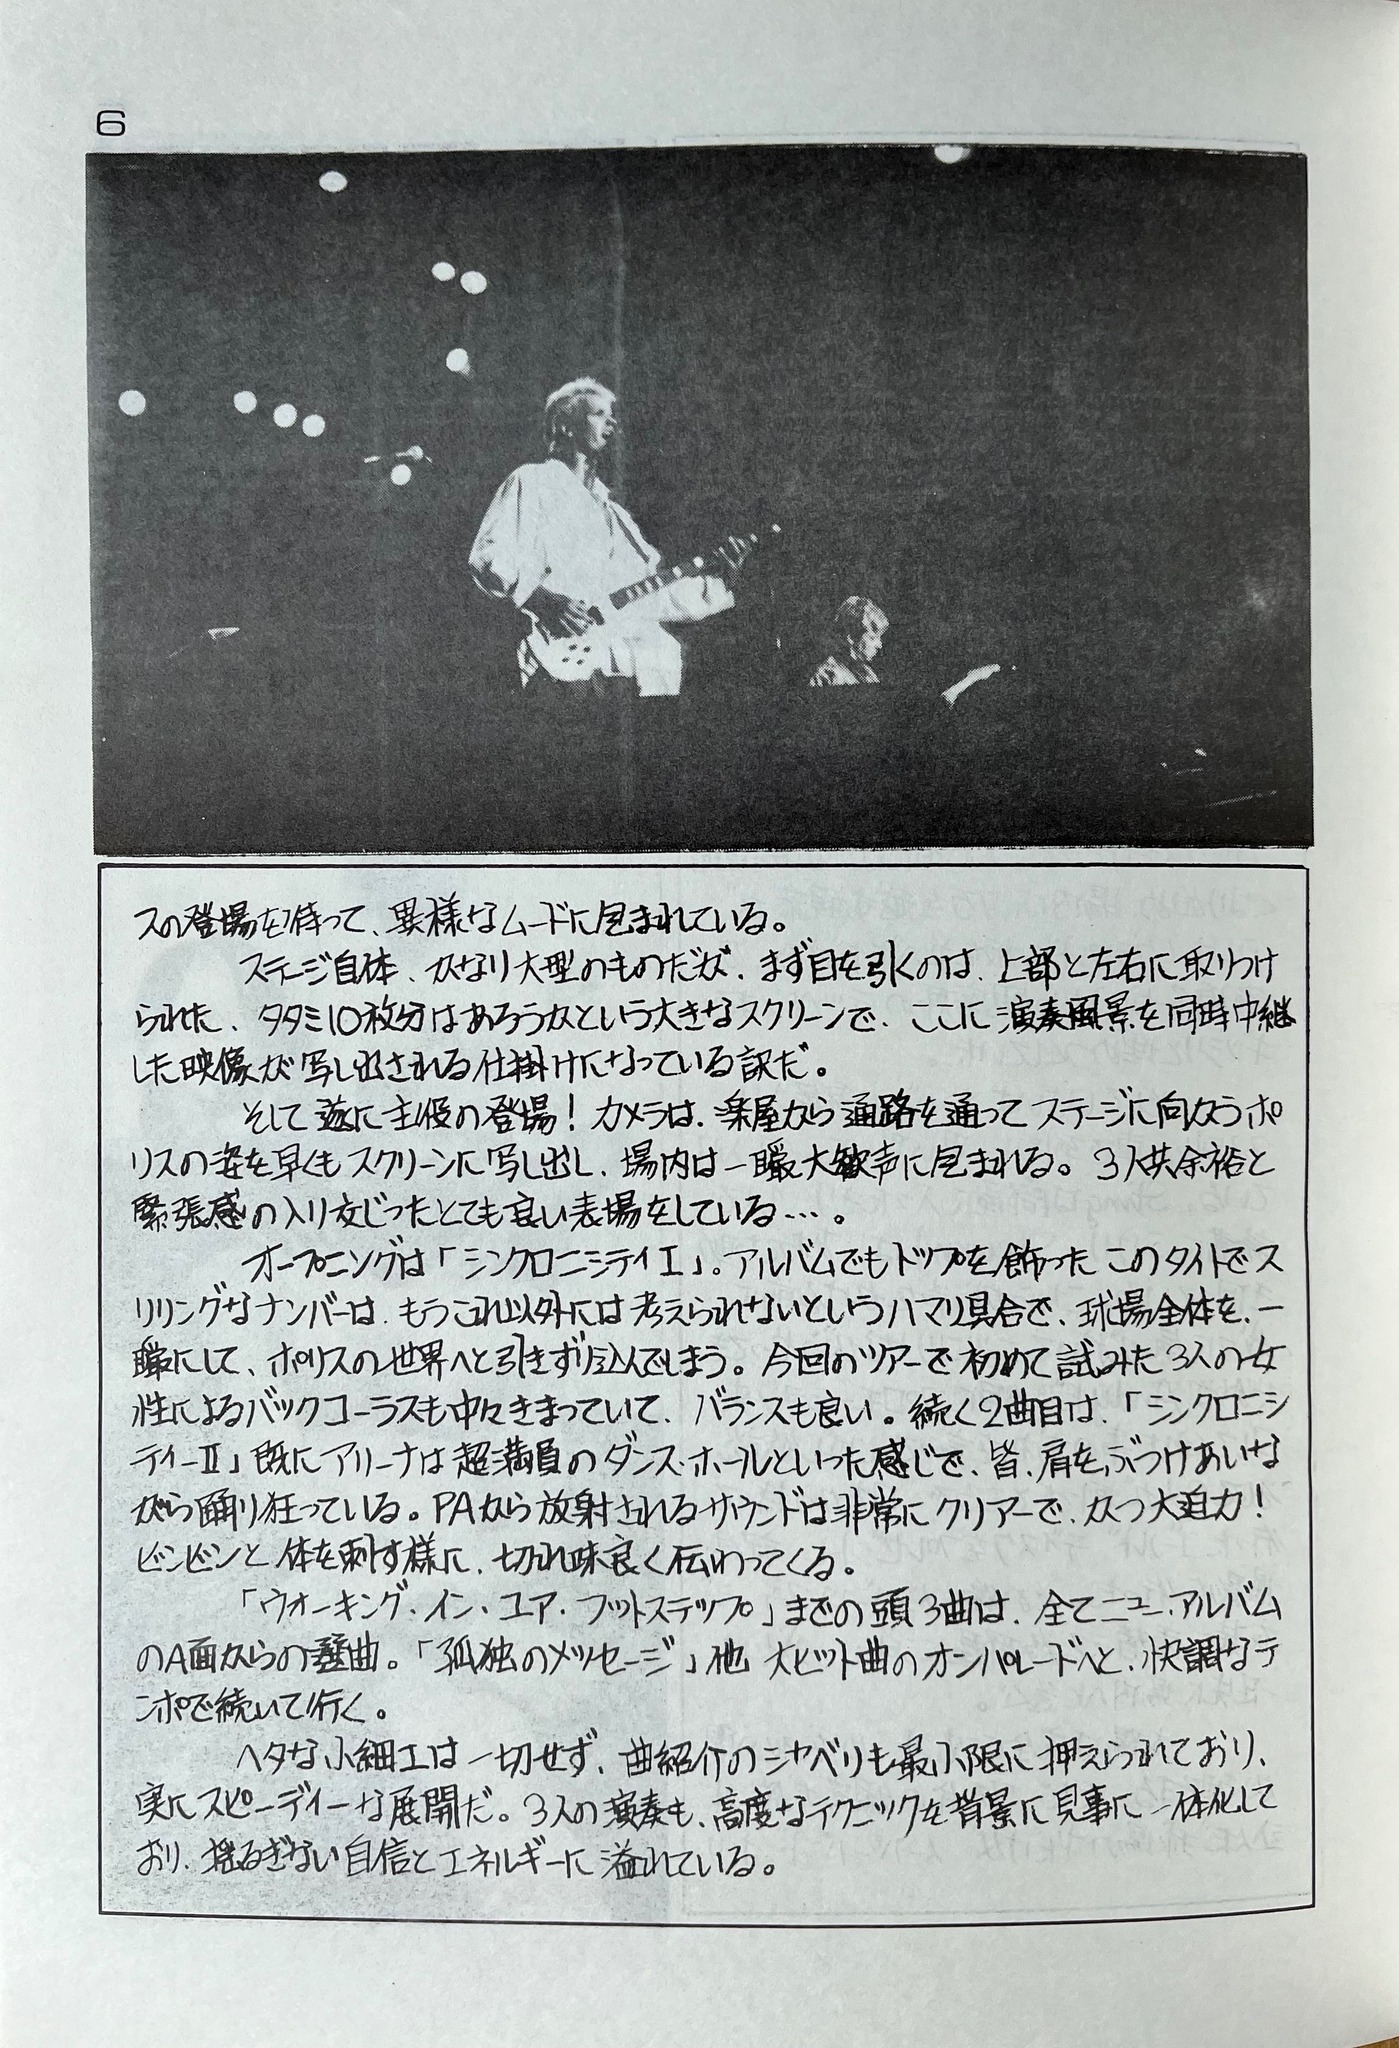 6
スの登場を待って、異様なムードに包まれている。
ステージ自体、かなり大型のものだが、まず目を引くのは、上部と左右に取りつけ
られた、タタミ10枚分はあろうかという大きなスクリーンで、ここに演奏風景を同時中継
した映像が写し出される仕掛けになっている訳だ。
そして遂に主役の登場！カメラは、楽屋から通路を通ってステージに向かうポ
リスの姿を早くもスクリーンに写し出し、場内は一瞬大歓声に包まれる。3人共余裕と
緊張感の入り交じったとても良い表場をしている…。
オープニングは「シンクロニシティI」。アルバムでもトップを飾ったこのタイトでス
リリングなナンバーは、もうこれ以外には考えられないというハマリ具合で、球場全体を、一
瞬にして、ポリスの世界へと引きずり込んでしまう。今回のツアーで初めて試みた3人の女
性によるバックコーラスも中々きまっていて、バランスも良い。続く2曲目は、「シンクロニシ
ティーII」既にアリーナは超満員のダンス・ホールといった感じで、皆、肩をぶつけあいな
がら踊り狂っている。PAから放射されるサウンドは非常にクリアーで、かつ大迫力！
ビンビンと体を刺す様に、切れ味良く伝わってくる。
「ウオーキング・イン・ユア・フットステップ」までの頭3曲は、全てニュー・アルバム
のA面からの選曲。「孤独のメッセージ」他 大ヒット曲のオンパレードへと、快調なテ
ンポで続いて行く。
ヘタな小細工は一切せず、曲紹介のシャベリも最小限に押えられており、
実にスピーディーな展開だ。3人の演奏も、高度なテクニックを背景に見事に一体化して
おり、揺るぎない自信とエネルギーに溢れている。